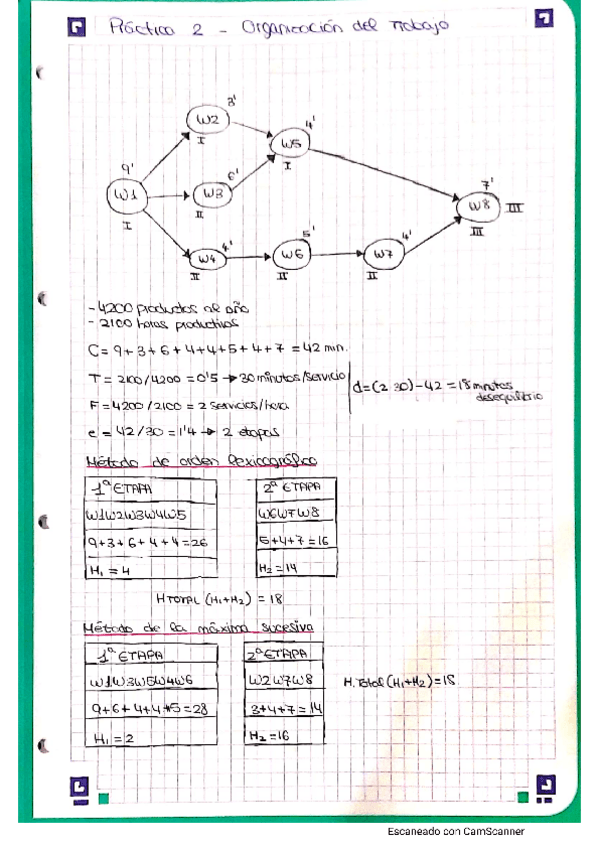 Práctica 2 - Organización del Trabajo
3'
W2
I
4'
W5
I
9'
W1
I
6'
W3
II
7'
W8
III
III
4'
W4
II
5'
W6
II
4'
W7
II
- 4200 productos al año
- 2100 horas productivas
C = 9+3+6+4+4+5+4+7 = 42 min.
T = 2100/4200 = 0'5 → 30 minutos/servicio
d = (2·30) - 42 = 18 minutos
desequilibrio
F = 4200/2100 = 2 servicios/hora
e = 42/30 = 1'4 → 2 etapas
Método de orden lexicográfico
1ª ETAPA
W1W2W3W4W5
9+3+6+4+4=26
H₁ = 4
2ª ETAPA
W6W7W8
5+4+7=16
H₂ = 14
H TOTAL (H₁+H₂) = 18
Método de la máxima sucesiva
1ª ETAPA
W1W3W5W4W6
9+6+4+4+5=28
H₁ = 2
2ª ETAPA
W2W7W8
3+4+7=14
H₂ = 16
H. Total (H₁+H₂) = 18
Escaneado con CamScanner